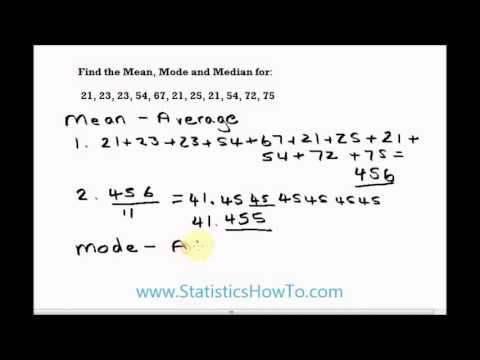 Find the Mean, Mode and Median for:
21, 23, 23, 54, 67, 21, 25, 21, 54, 72, 75
Mean - Average
1. 21+23+23+54+67+21+25+21+
54+72+75=
456
2. 456/11 = 41.45 45 45 45 45 45
41.455
Mode - A
www.StatisticsHowTo.com